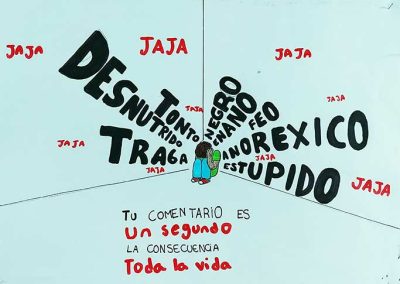 JAJA
JAJA
JAJA
DESNUTRIDO
TONTO
NEGRO
ENANO
FEO
JAJA
JAJA
TRAGA
ANOREXICO
JAJA
JAJA
JAJA
ESTUPIDO
JAJA
TU COMENTARIO ES
Un segundo
LA CONSECUENCIA
Toda la vida